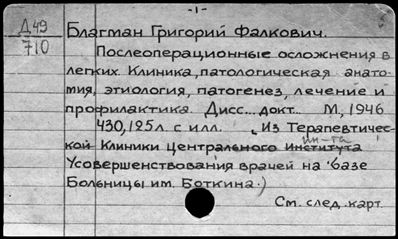 -1-
Д49
710
Благман Григорий Фалкович.
Послеоперационные осложнения в
легких. Клиника, патологическая анато-
мия, этиология, патогенез, лечение и
профилактика. Дисс... докт. М, 1946
430,125л. с илл. (Из Терапевтичес-
ин-та
кой Клиники Центрального Института
Усовершенствования врачей на базе
Больницы им. Боткина.)
См. след. карт.